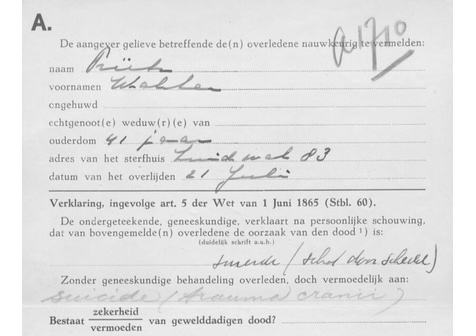 A.
A1710
De aangever gelieve betreffende de(n) overledene nauwkeurig te vermelden:
naam
voornamen Walther
ongehuwd
echtgenoot(e) weduw(r)e van
ouderdom 41 jaar
adres van het sterfhuis Zuidwal 83
datum van het overlijden 21 Juli
Verklaring, ingevolge art. 5 der Wet van 1 Juni 1865 (Stbl. 60).
De ondergeteekende, geneeskundige, verklaart na persoonlijke schouwing,
dat van bovengemeld(n) overledene de oorzaak van den dood ¹) is:
(duidelijk schrift a.u.b.)
suicide (schot door schedel)
Zonder geneeskundige behandeling overleden, doch vermoedelijk aan:
suicide (trauma cranii)
zekerheid
Bestaat vermoeden van gewelddadigen dood?